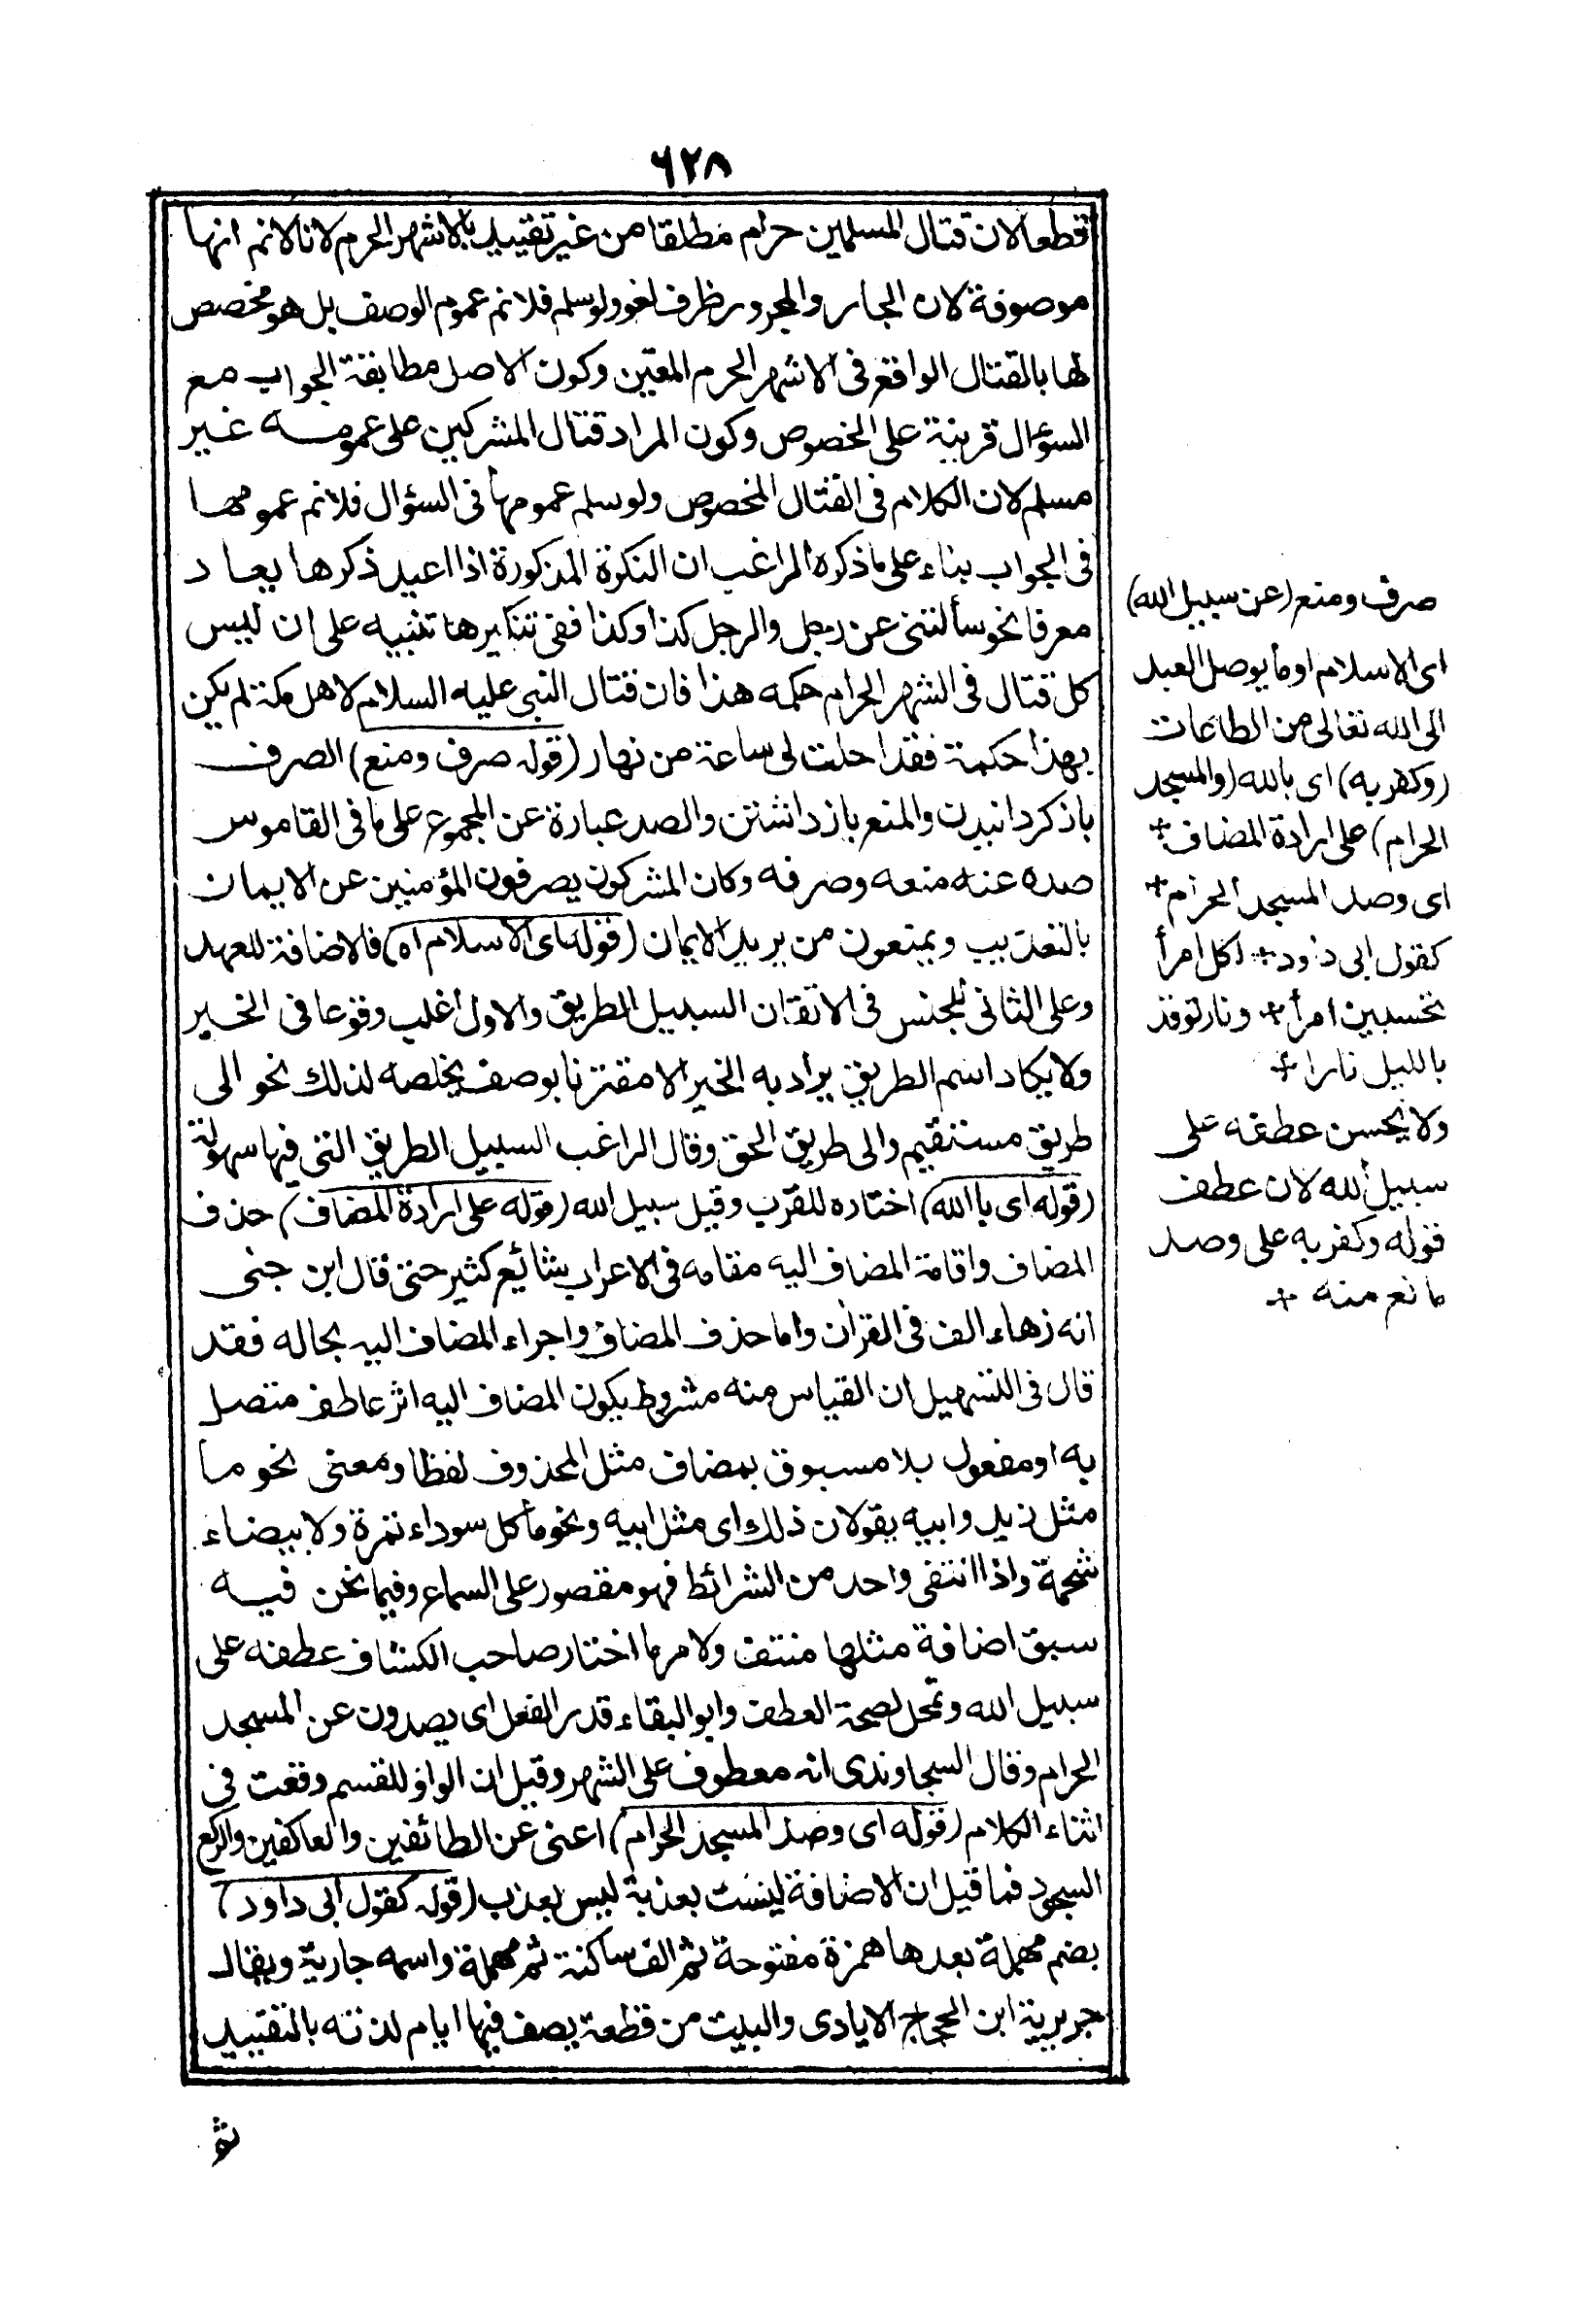 ٦٢٨
قطعا لان قتال المسلمين حرام مطلقا من غير تقييد بالاشهر الحرم لانا لانم انها
موصوفة لان الجار والمجرور ظرف لغو ولو سلم فلانم عموم الوصف بل هو مخصص
لها بالقتال الواقع فى الاشهر الحرم المعين وكون الاصل مطابقة الجواب مع
السؤال قرينة على الخصوص وكون المراد قتال المشركين على عمومه غير
مسلم لان الكلام فى القتال المخصوص ولو سلم عمومها فى السؤال فلانم عمومها
فى الجواب بناء على ما ذكره الراغب ان النكرة المذكورة اذا اعيد ذكرها يعاد
معرفا نحو سألتنى عن رجل والرجل كذا وكذا ففى تنكيرها تنبيه على ان ليس
كل قتال فى الشهر الحرام حكمه هذا فان قتال النبى عليه السلام لاهل مكة لم يكن
بهذا حكمة فقد احلت لى ساعة من نهار (قوله صرف ومنع) الصرف
باز كردانيدن والمنع باز داشتن والصد عبارة عن المجموع على ما فى القاموس
صده عنه منعه وصرفه وكان المشركون يصرفون المؤمنين عن الايمان
بالتعذيب ويمنعون من يريد الايمان (قوله اى الاسلام اه) فالاضافة للعهد
وعلى الثانى للجنس فى الاتقان السبيل الطريق والاول اغلب وقوعا فى الخير
ولا يكاد اسم الطريق يراد به الخير الا مقترنا بوصف يخلصه لذلك نحو الى
طريق مستقيم والى طريق الحق وقال الراغب السبيل الطريق التى فيها سهولة
(قوله اى باالله) اختاره للقرب وقيل سبيل الله (قوله على ارادة المضاف) حذف
المضاف واقامة المضاف اليه مقامه فى الاعراب شائع كثير حتى قال ابن جنى
انه زهاء الف فى القرأن واما حذف المضاف واجراء المضاف اليه بحاله فقد
قال فى التسهيل ان القياس منه مشروط بكون المضاف اليه اثر عاطف متصل
به او مفعول بلا مسبوق بمضاف مثل المحذوف لفظا ومعنى نحو ما
مثل زيد وابيه يقولان ذلك اى مثل ابيه ونحو ما كل سوداء تمرة ولا بيضاء
شحمة واذا انتفى واحد من الشرائط فهو مقصور على السماع وفيما نحن فيه
سبق اضافة مثلها منتف ولامر ما اختار صاحب الكشاف عطفه على
سبيل الله وتمحل لصحة العطف وابو البقاء قدر الفعل اى يصدون عن المسجد
الحرام وقال السجاوندى انه معطوف على الشهر وقيل ان الواو للقسم وقعت فى
اثناء الكلام (قوله اى وصد المسجد الحرام) اعنى عن الطائفين والعاكفين والركع
السجود فما قيل ان الاضافة ليست بعذبة ليس بعذب (قوله كقول ابى داود)
بضم مهملة بعدها همزة مفتوحة ثم الف ساكنة ثم مهملة واسمه جارية ويقال
جريرية ابن الحجاج الايادى والبيت من قطعة يصف فيها ايام لذته بالتقييد
صرف ومنع (عن سبيل الله)
اى الاسلام او ما يوصل العبد
الى الله تعالى من الطاعات
(وكفر به) اى بالله (والمسجد
الحرام) على ارادة المضاف +
اى وصد المسجد الحرام +
كقول ابى دود + اكل امرأ
تحسبين امرأ + ونار توقد
بالليل نارا +
ولا يحسن عطفه على
سبيل الله لان عطف
قوله وكفر به على وصد
مانع منه +